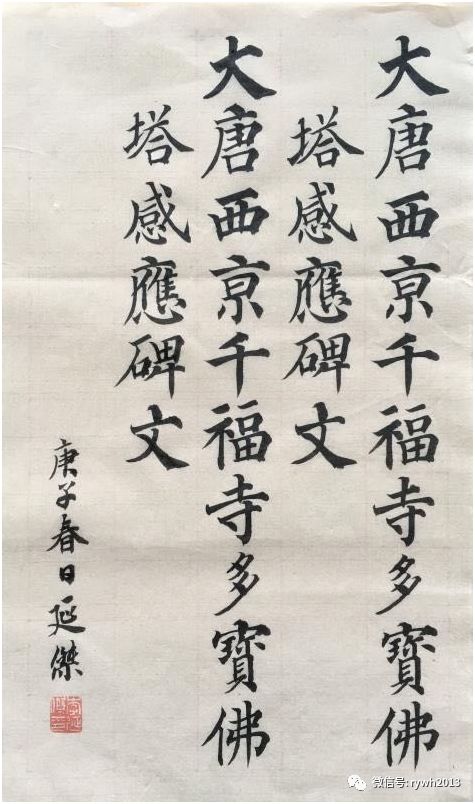 大唐西京千福寺多寶佛
塔感應碑文
大唐西京千福寺多寶佛
塔感應碑文
庚子春日延傑
微信号: rywh2013